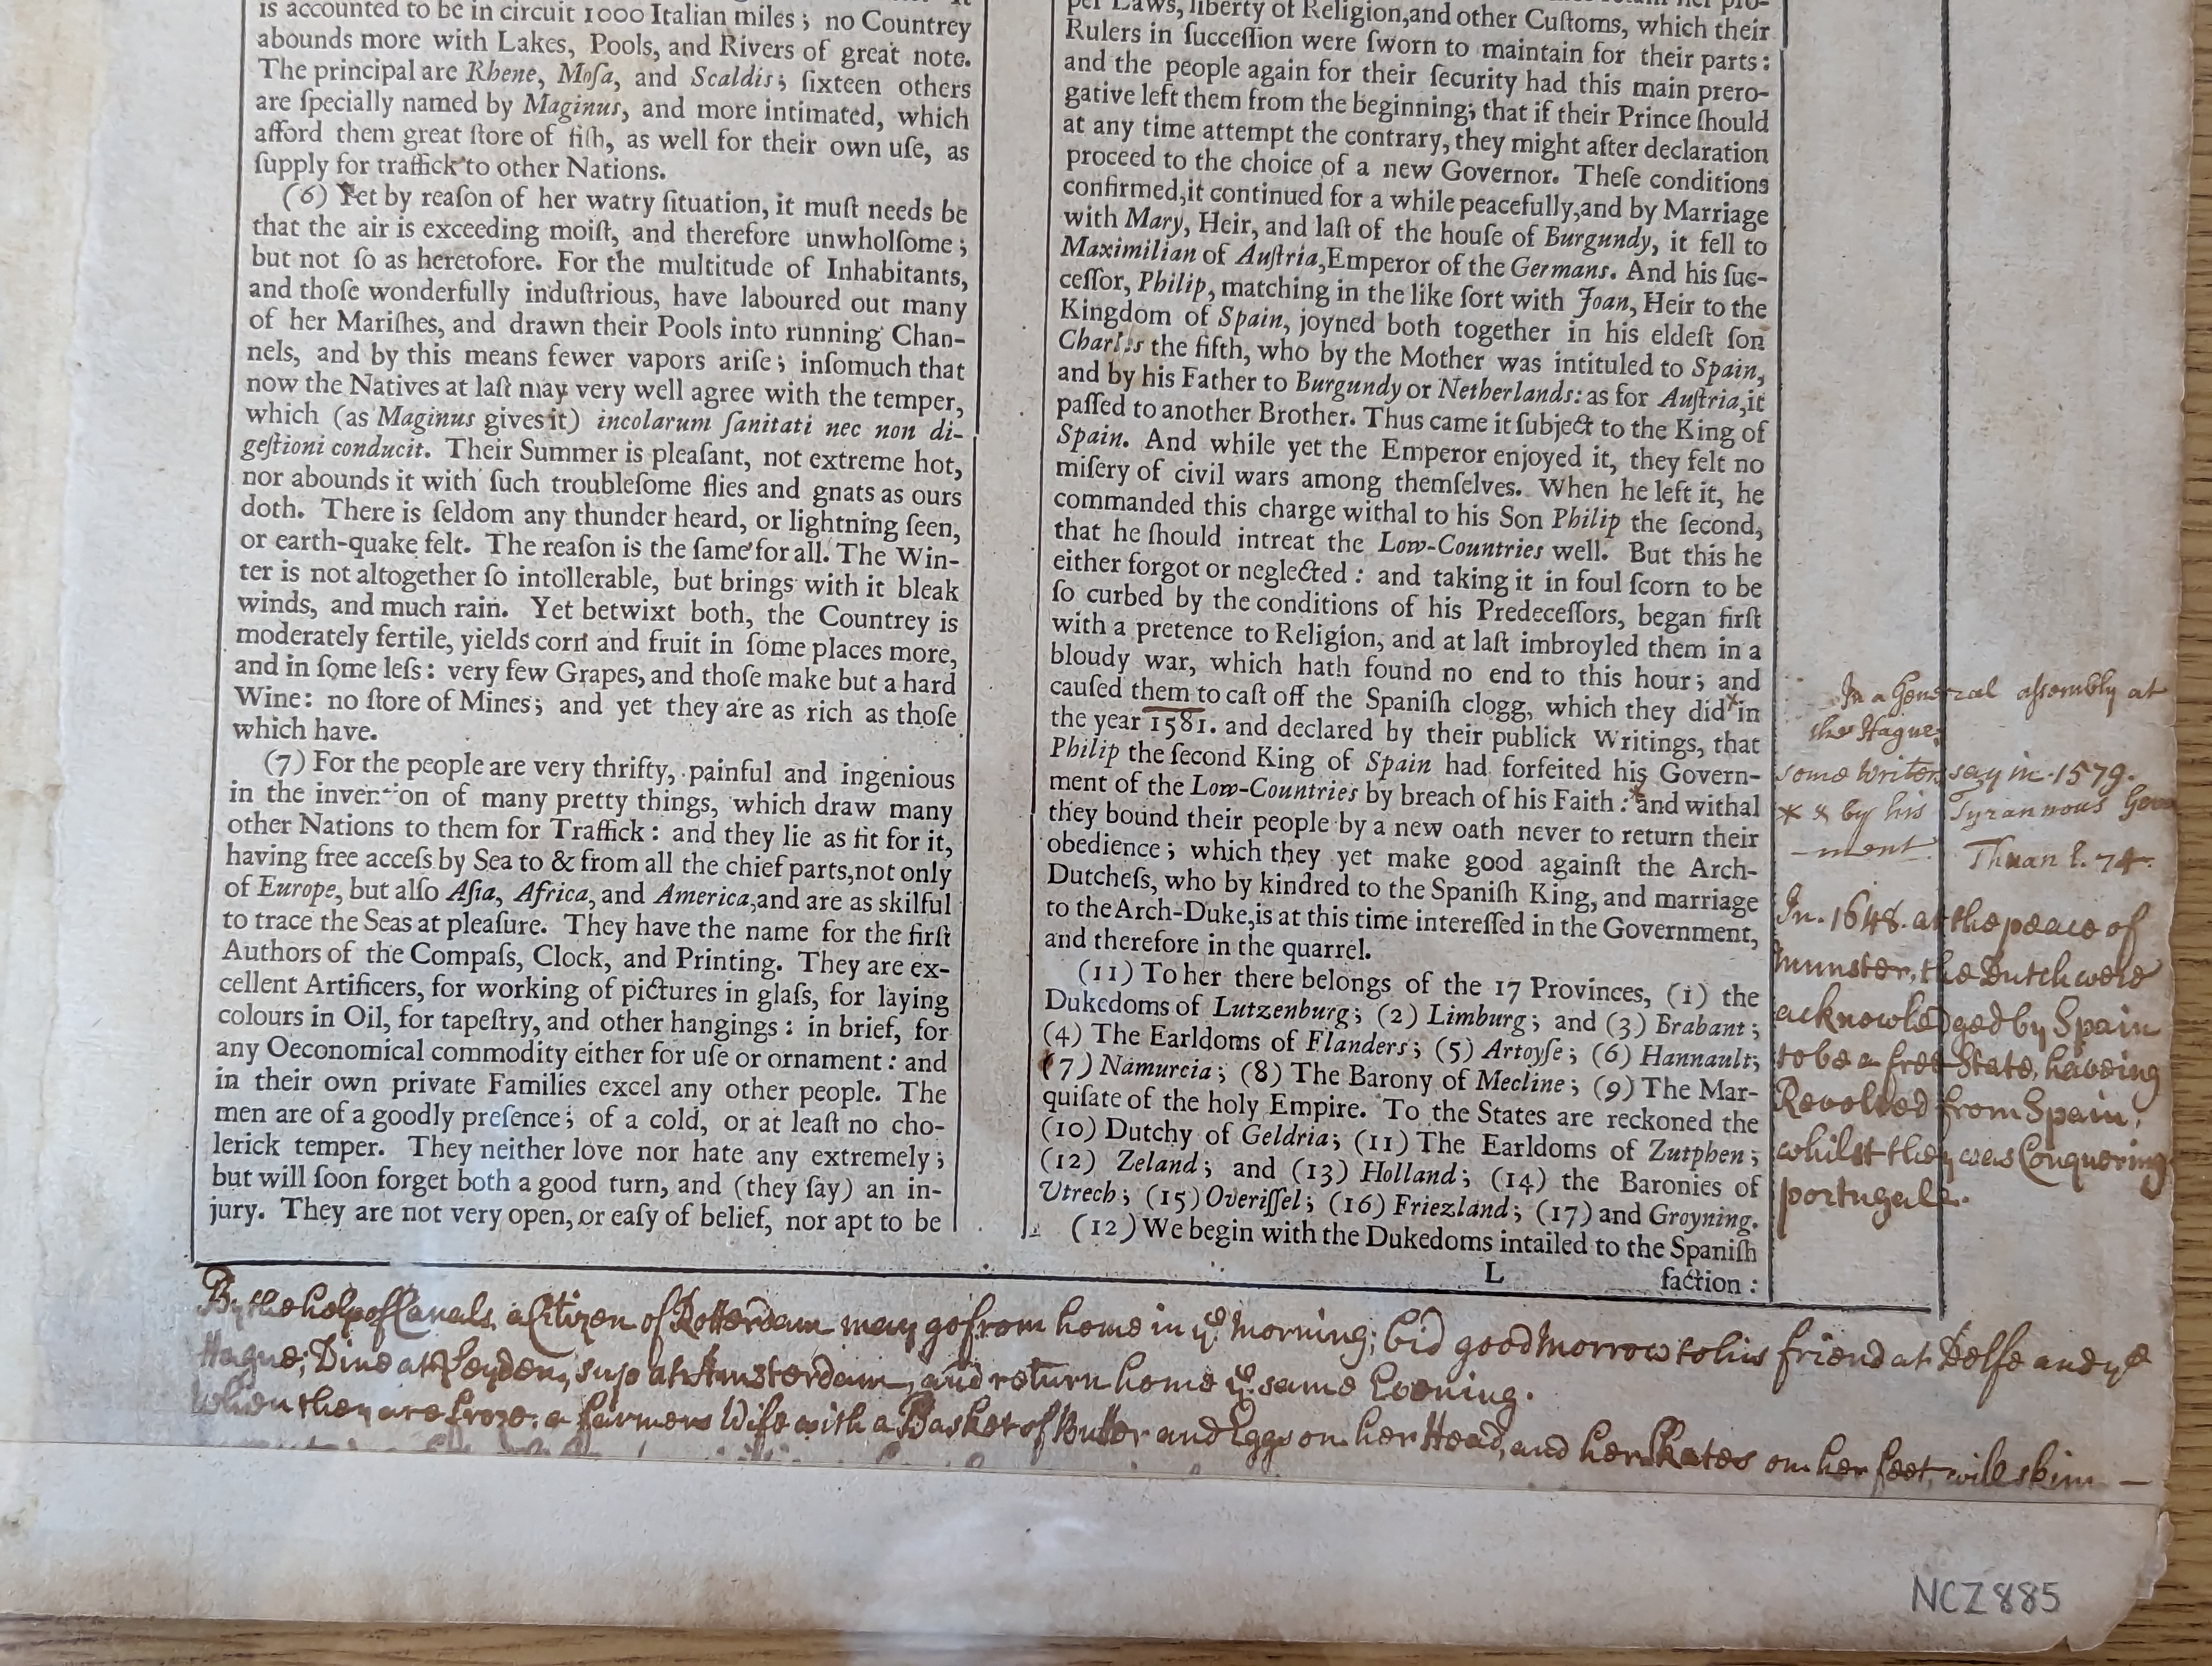 is accounted to be in circuit 1000 Italian miles; no Countrey
abounds more with Lakes, Pools, and Rivers of great note.
The principal are Rhene, Moſa, and Scaldis; ſixteen others
are ſpecially named by Maginus, and more intimated, which
afford them great ſtore of fiſh, as well for their own uſe, as
ſupply for traffick to other Nations.
(6) Yet by reaſon of her watry ſituation, it muſt needs be
that the air is exceeding moiſt, and therefore unwholſome;
but not ſo as heretofore. For the multitude of Inhabitants,
and thoſe wonderfully induſtrious, have laboured out many
of her Mariſhes, and drawn their Pools into running Chan-
nels, and by this means fewer vapors ariſe; inſomuch that
now the Natives at laſt may very well agree with the temper,
which (as Maginus gives it) incolarum ſanitati nec non di-
geſtioni conducit. Their Summer is pleaſant, not extreme hot,
nor abounds it with ſuch troubleſome flies and gnats as ours
doth. There is ſeldom any thunder heard, or lightning ſeen,
or earth-quake felt. The reaſon is the ſame for all. The Win-
ter is not altogether ſo intollerable, but brings with it bleak
winds, and much rain. Yet betwixt both, the Countrey is
moderately fertile, yields corn and fruit in ſome places more,
and in ſome leſs: very few Grapes, and thoſe make but a hard
Wine: no ſtore of Mines; and yet they are as rich as thoſe
which have.
(7) For the people are very thrifty, painful and ingenious
in the invention of many pretty things, which draw many
other Nations to them for Traffick: and they lie as fit for it,
having free acceſs by Sea to & from all the chief parts, not only
of Europe, but alſo Aſia, Africa, and America, and are as skilful
to trace the Seas at pleaſure. They have the name for the firſt
Authors of the Compaſs, Clock, and Printing. They are ex-
cellent Artificers, for working of pictures in glaſs, for laying
colours in Oil, for tapeſtry, and other hangings: in brief, for
any Oeconomical commodity either for uſe or ornament: and
in their own private Families excel any other people. The
men are of a goodly preſence; of a cold, or at leaſt no cho-
lerick temper. They neither love nor hate any extremely;
but will ſoon forget both a good turn, and (they ſay) an in-
jury. They are not very open, or eaſy of belief, nor apt to be
per Laws, liberty of Religion, and other Cuſtoms, which their
Rulers in ſucceſſion were ſworn to maintain for their parts:
and the people again for their ſecurity had this main prero-
gative left them from the beginning; that if their Prince ſhould
at any time attempt the contrary, they might after declaration
proceed to the choice of a new Governor. Theſe conditions
confirmed, it continued for a while peacefully, and by Marriage
with Mary, Heir, and laſt of the houſe of Burgundy, it fell to
Maximilian of Auſtria, Emperor of the Germans. And his ſuc-
ceſſor, Philip, matching in the like ſort with Joan, Heir to the
Kingdom of Spain, joyned both together in his eldeſt ſon
Charles the fifth, who by the Mother was intituled to Spain,
and by his Father to Burgundy or Netherlands: as for Auſtria, it
paſſed to another Brother. Thus came it ſubject to the King of
Spain. And while yet the Emperor enjoyed it, they felt no
miſery of civil wars among themſelves. When he left it, he
commanded this charge withal to his Son Philip the ſecond,
that he ſhould intreat the Low-Countries well. But this he
either forgot or neglected: and taking it in foul ſcorn to be
ſo curbed by the conditions of his Predeceſſors, began firſt
with a pretence to Religion, and at laſt imbroyled them in a
bloudy war, which hath found no end to this hour; and
cauſed them to caſt off the Spaniſh clogg, which they did * in
the year 1581. and declared by their publick Writings, that
Philip the ſecond King of Spain had forfeited his Govern-
ment of the Low-Countries by breach of his Faith: * and withal
they bound their people by a new oath never to return their
obedience; which they yet make good againſt the Arch-
Dutcheſs, who by kindred to the Spaniſh King, and marriage
to the Arch-Duke, is at this time intereſſed in the Government,
and therefore in the quarrel.
(11) To her there belongs of the 17 Provinces, (1) the
Dukedoms of Lutzenburg; (2) Limburg; and (3) Brabant;
(4) The Earldoms of Flanders; (5) Artoyſe; (6) Hannault;
(7) Namurcia; (8) The Barony of Mecline; (9) The Mar-
quiſate of the holy Empire. To the States are reckoned the
(10) Dutchy of Geldria; (11) The Earldoms of Zutphen;
(12) Zeland; and (13) Holland; (14) the Baronies of
Utrech; (15) Overiſſel; (16) Friezland; (17) and Groyning.
(12) We begin with the Dukedoms intailed to the Spaniſh
L faction:
In a General aſsembly at
the Hague
some Writers say in 1579.
* & by his Tyrannous Gov
-ment. Thuan l. 74.
In 1648. at the peace of
Munster, the Dutch were
acknowledged by Spain
to be a free State, haveing
Revolted from Spain,
whilst they was Conquering
portugale.
By the help of Canals, a Citizen of Rotterdam may go from home in ye Morning; bid good Morrow to his friend at Delfe and ye
Hague; Dine at Leyden, sup at Amsterdam, and return home ye same Evening.
When they are froze, a farmers Wife with a Basket of Butter and Eggs on her Head, and her Skates on her feet, will skim —
NCZ885